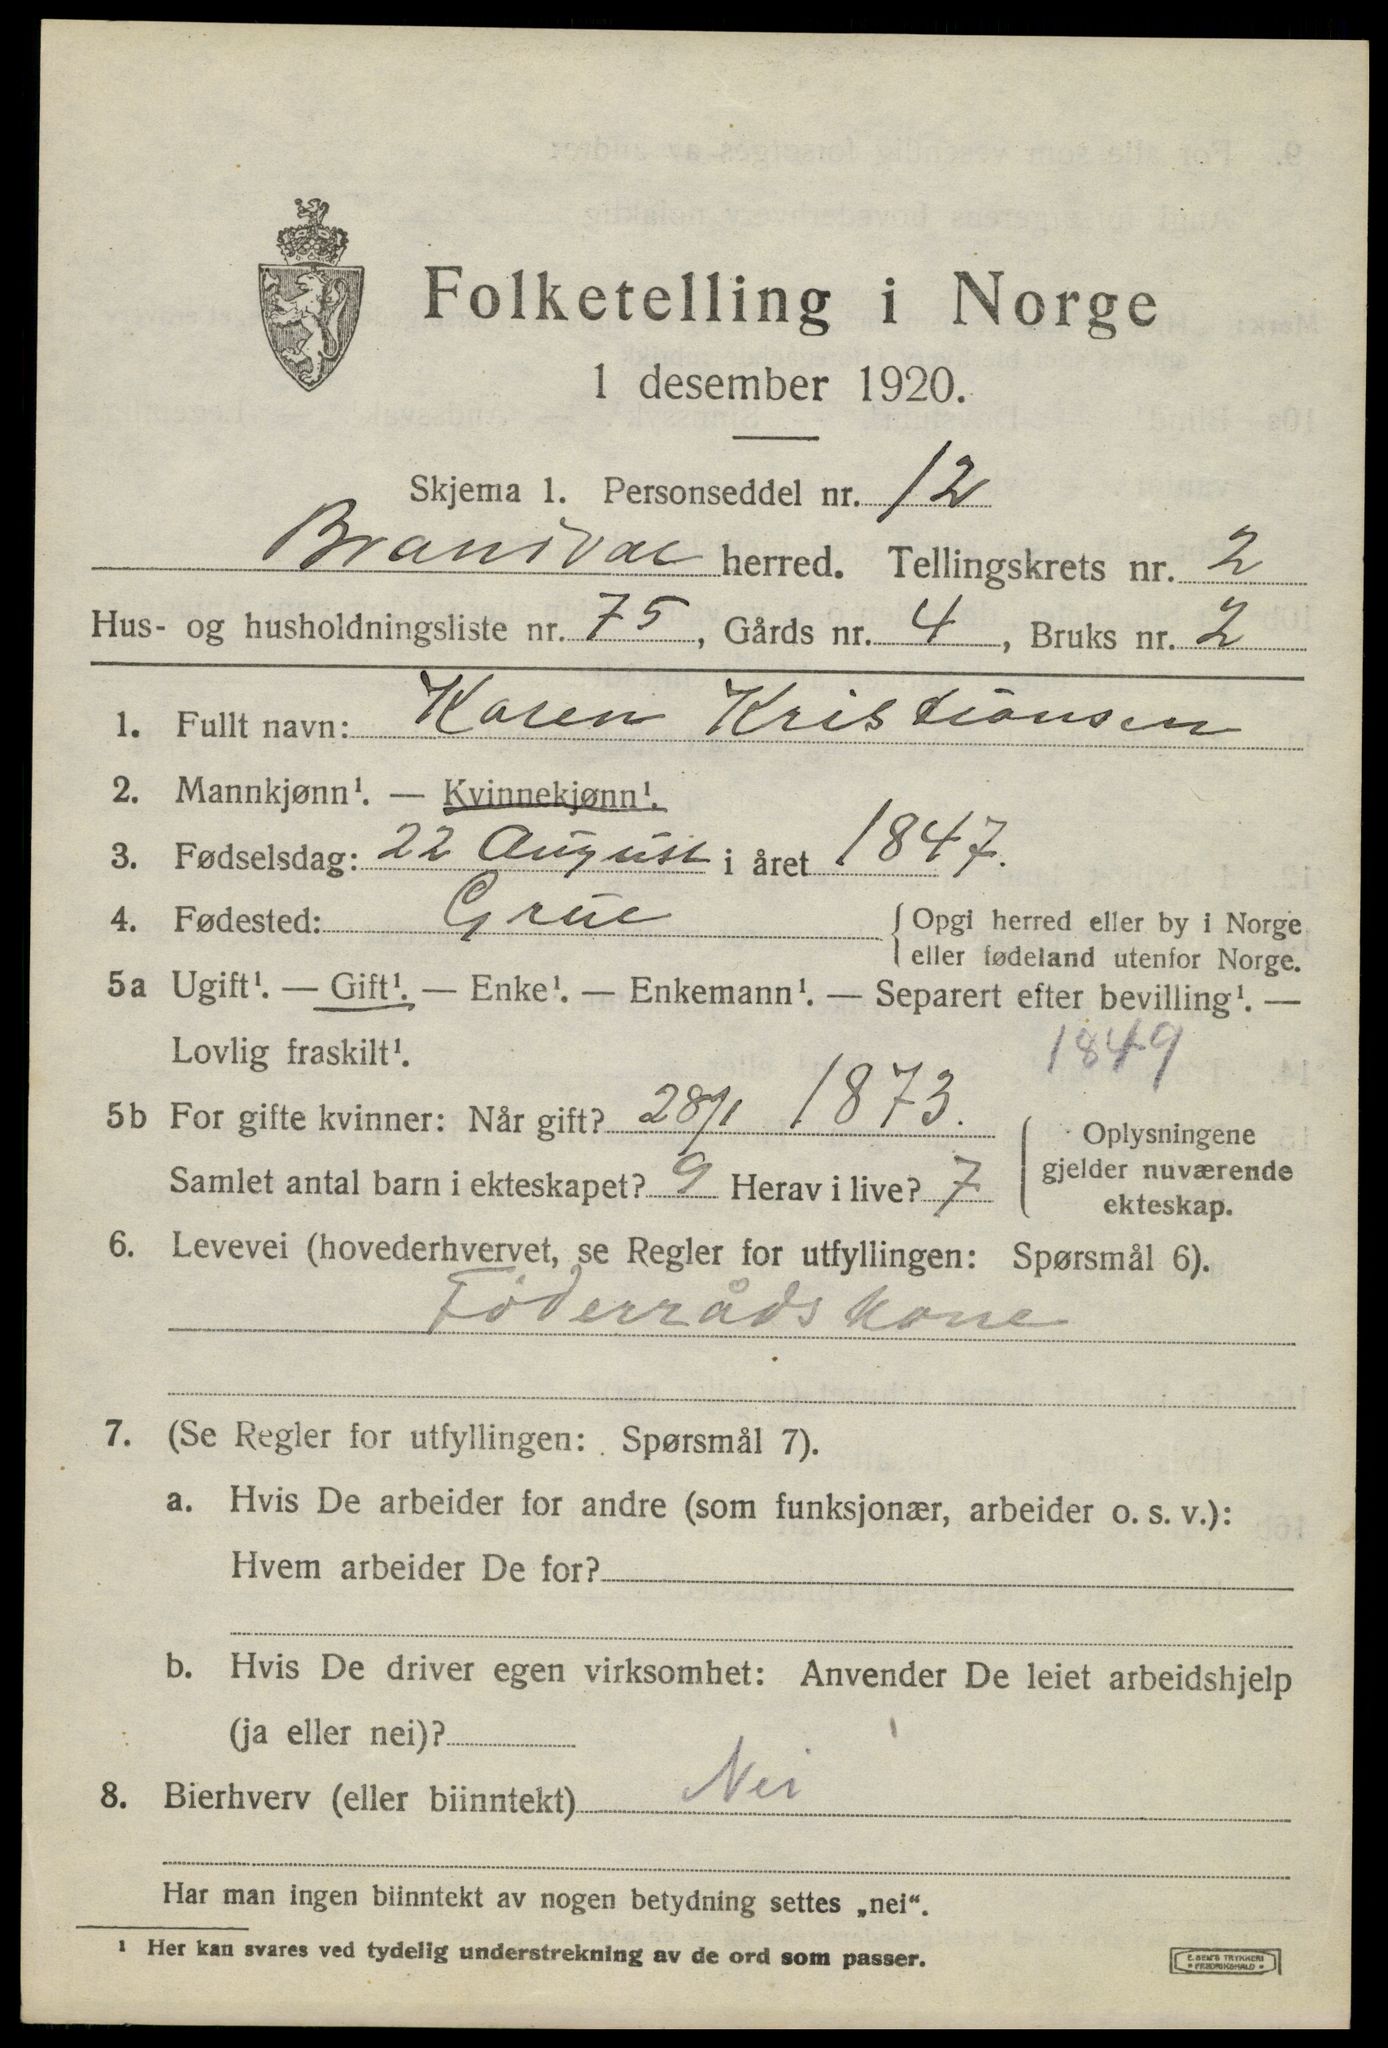 Folketelling i Norge
1 desember 1920.
Skjema 1. Personseddel nr. 12
Brandval herred. Tellingskrets nr. 2
Hus- og husholdningsliste nr. 75, Gårds nr. 4, Bruks nr. 2
1. Fullt navn: Karen Kristiansen
2. Mannkjønn¹. — Kvinnekjønn¹.
3. Fødselsdag: 22 August i året 1847.
4. Fødested: Grue { Opgi herred eller by i Norge
eller fødeland utenfor Norge.
5a Ugift¹. — Gift¹. — Enke¹. — Enkemann¹. — Separert efter bevilling¹. —
Lovlig fraskilt¹. 1849
5b For gifte kvinner: Når gift? 28/1 1873.
Samlet antal barn i ekteskapet? 9 Herav i live? 7
{ Oplysningene
gjelder nuværende
ekteskap.
6. Levevei (hovederhvervet, se Regler for utfyllingen: Spørsmål 6).
Föderrådskone
7. (Se Regler for utfyllingen: Spørsmål 7).
a. Hvis De arbeider for andre (som funksjonær, arbeider o. s. v.):
Hvem arbeider De for?
b. Hvis De driver egen virksomhet: Anvender De leiet arbeidshjelp
(ja eller nei)?
8. Bierhverv (eller biinntekt) Nei
Har man ingen biinntekt av nogen betydning settes „nei“.
¹ Her kan svares ved tydelig understrekning av de ord som passer.
E. SEM'S TRYKKERI
• FREDRIKSHALD •